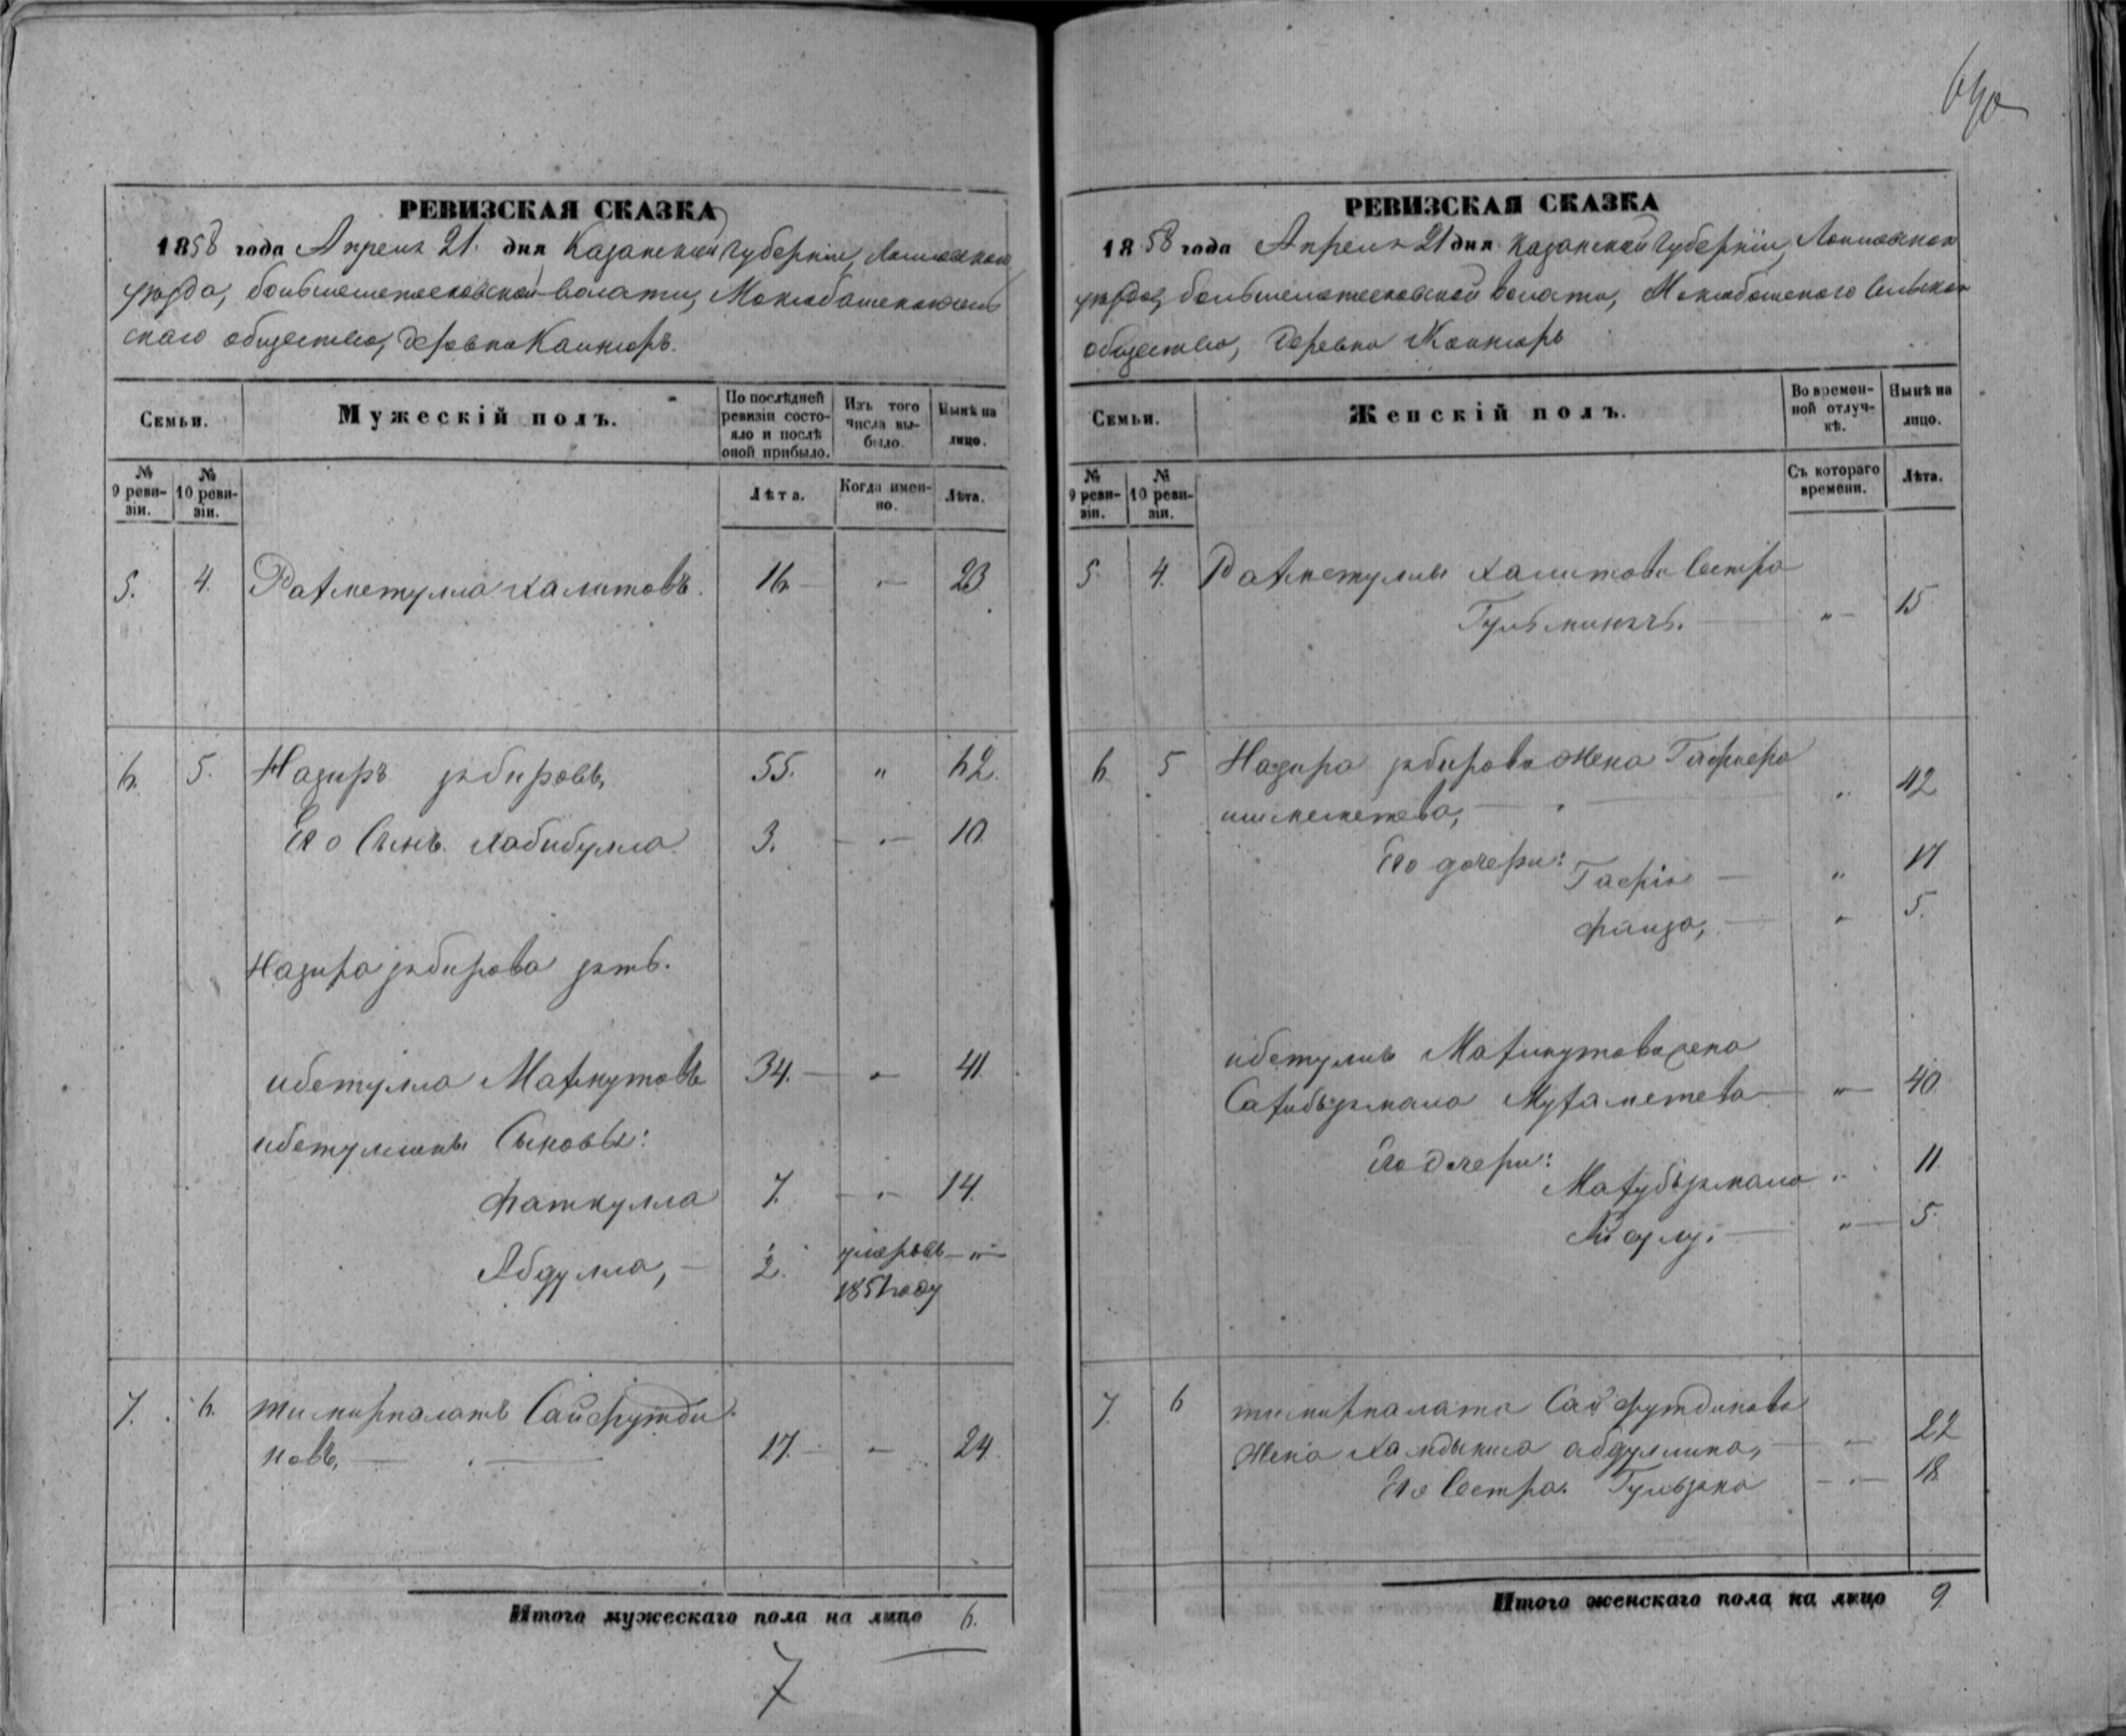 690
РЕВИЗСКАЯ СКАЗКА
1858 года Апреля 21. дня Казанской Губерніи, Лаишевскаго
уѣзда, большеметесковской волости, Моклобашскаго сель
скаго общества, деревни Каинюръ.
Семьи.
Мужескій полъ.
По послѣдней ревизіи состояло и послѣ оной прибыло.
Изъ того числа выбыло.
Нынѣ на лицо.
№ 9 ревизіи.
№ 10 ревизіи.
Лѣта.
Когда именно.
Лѣта.
5. 4. Рахметулла халитовъ. 16 „ 23
6. 5. Надиръ забировъ, 55. „ 62.
Его Сынъ. хабибулла 3. „ 10.
Надира забирова зять.
ибетулла Махмутовъ 34. „ 41.
ибетуллины Сыновья:
фаткулла 7. „ 14.
Абдулла, 2. умеръ въ „
1851 году
7. 6. тимирпалатъ Сайфутди
новъ, 17. „ 24.
Итого мужескаго пола на лицо 6.
7
РЕВИЗСКАЯ СКАЗКА
1858 года Апреля 21 дня Казанской Губерніи, Лаишевскаго
уѣзда, большеметесковской волости, Моклобашскаго Сельскаго
общества, деревни Каинюръ
Семьи.
Женскій полъ.
Во временной отлучкѣ.
Нынѣ на лицо.
№ 9 ревизіи.
№ 10 ревизіи.
Съ котораго времени.
Лѣта.
5. 4. Рахметуллы халитова Сестра
„ 15
6 5 Надира забирова жена
„ 42
Его дочери: „ 17
фаиза, „ 5.
ибетуллы Махмутова жена
Сахибзямала Мухаметева „ 40
Его дочери:
Махубзямала „ 11
Айсулу. „ 5.
7. 6 тимирпалата Сайфутдинова
жена абдуллина, „ 22
Его Сестра. „ 18
Итого женскаго пола на лицо 9